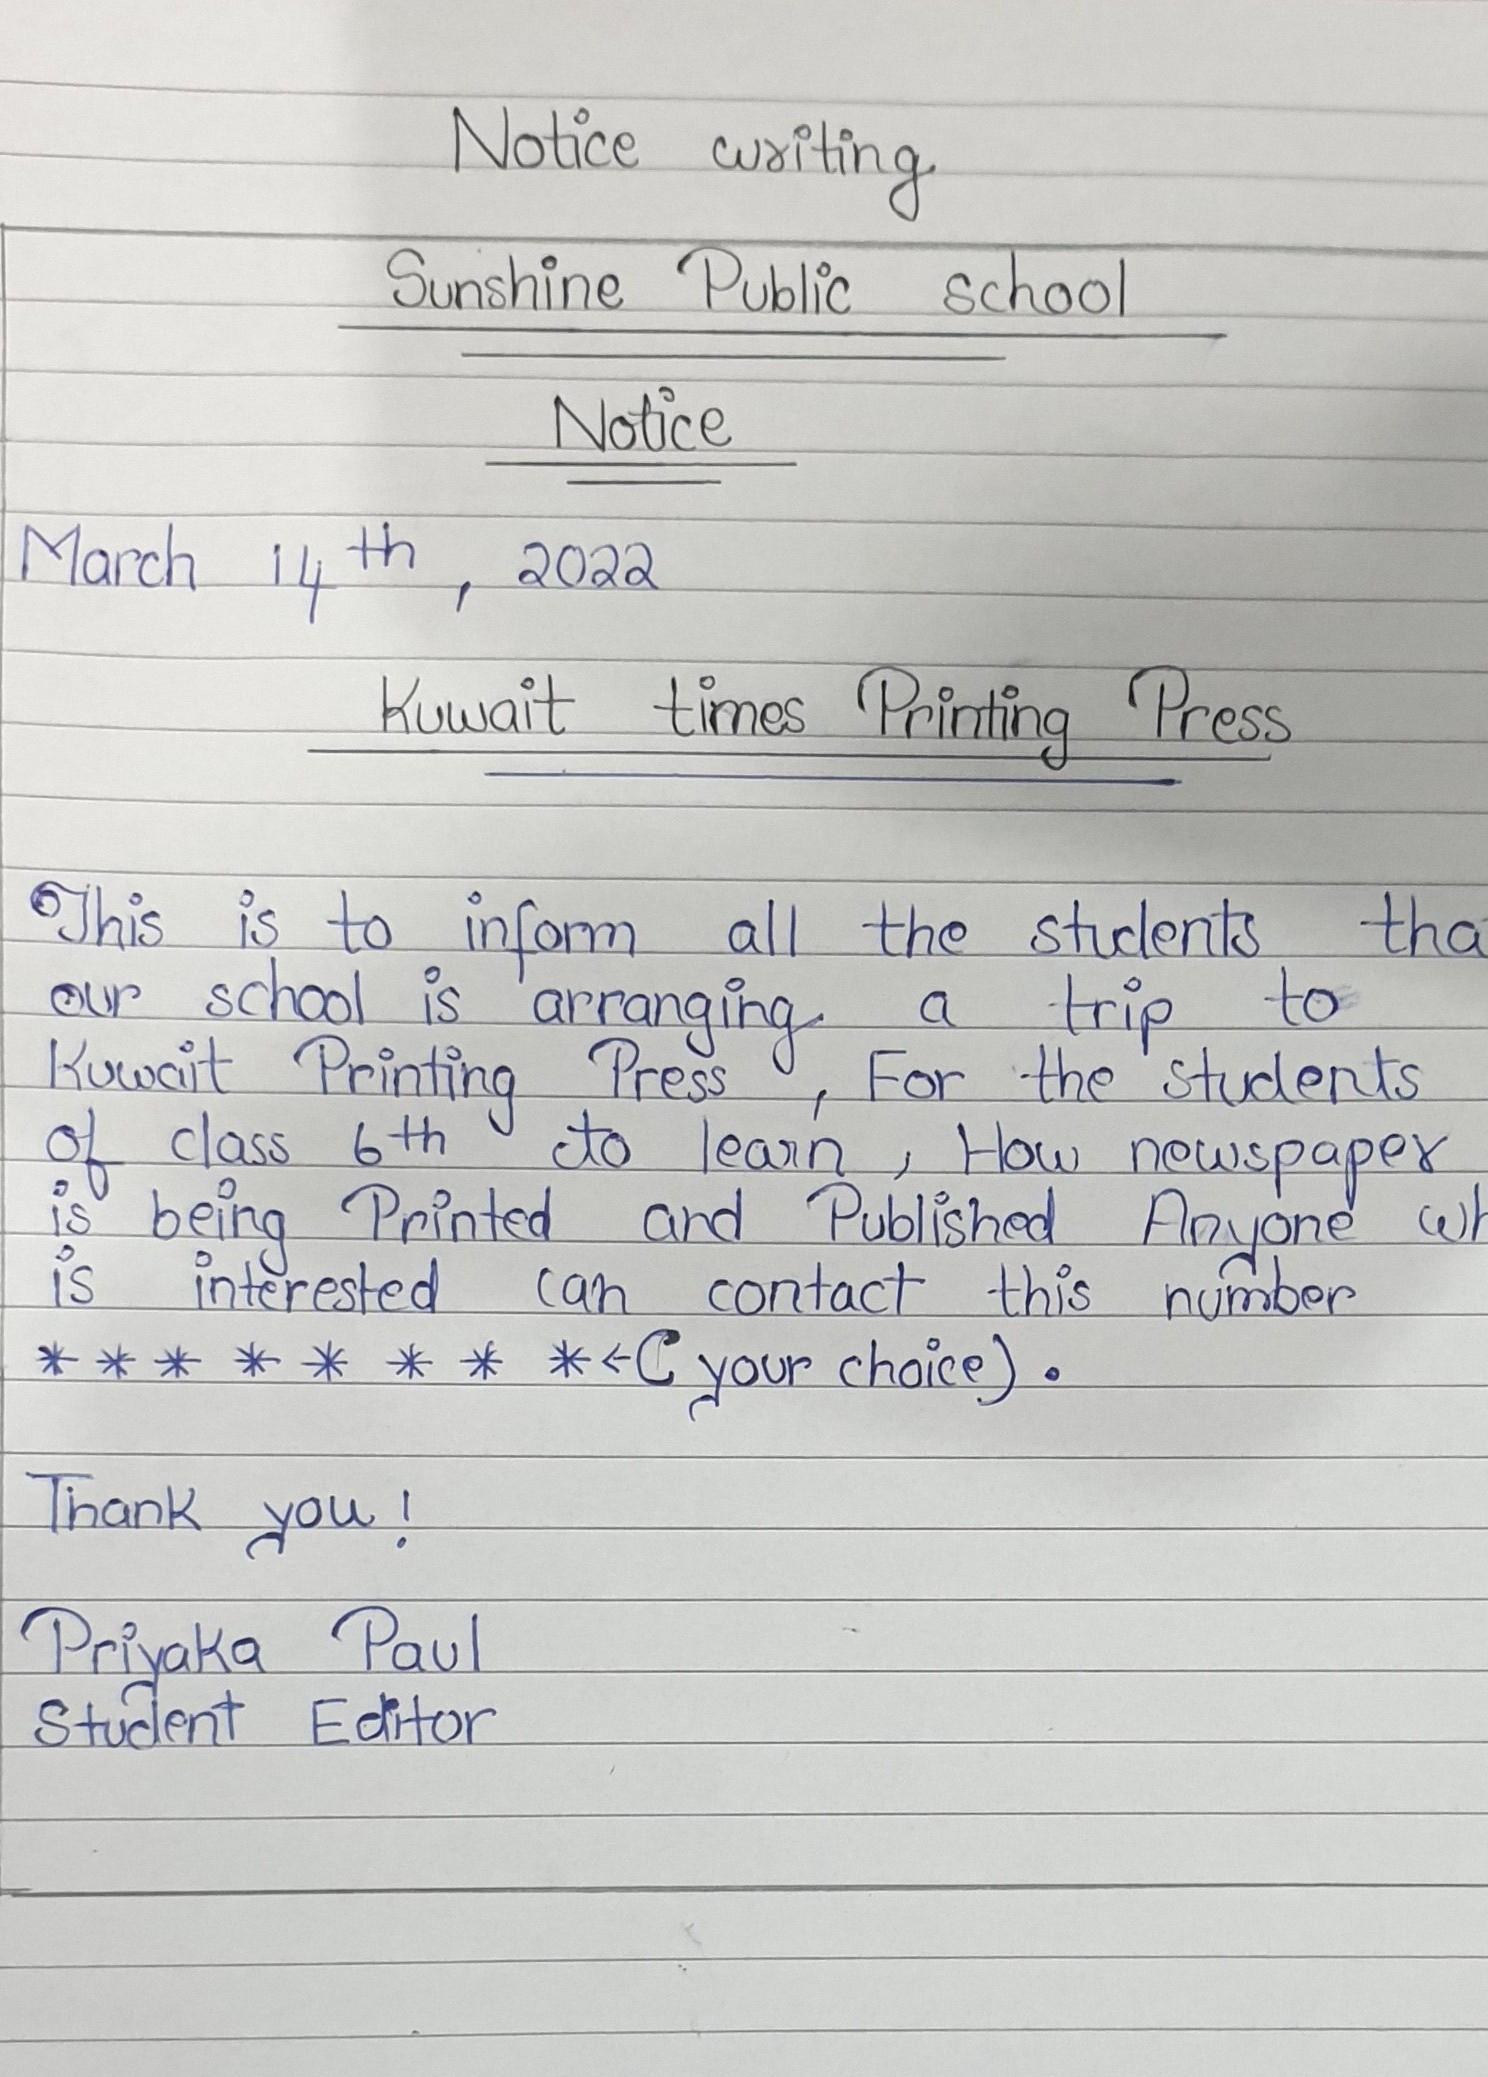 Notice writing
Sunshine Public school
Notice
March 14th, 2022
Kuwait times Printing Press
This is to inform all the students tha
our school is arranging a trip to
Kuwait Printing Press, For the students
of class 6th to learn, How newspaper
is being Printed and Published Anyone wh
is interested can contact this number
* * * * * * * *←( your choice).
Thank you!
Priyaka Paul
Student Editor